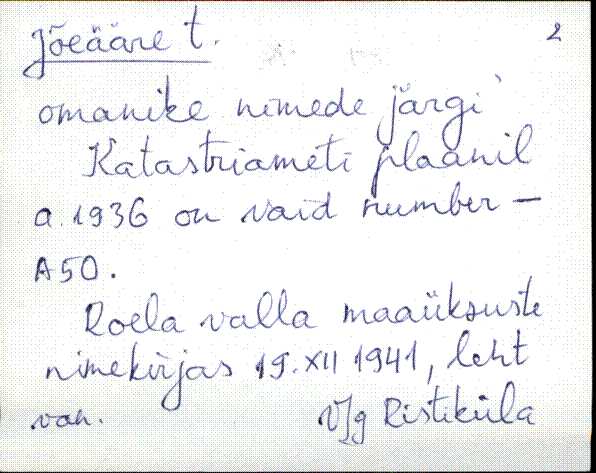 Jõeääre t. 2
omanike nimede järgi
Katastriameti plaanil
a. 1936 on vaid number —
A50.
Roela valla maaüksuste
nimekirjas 19. XII 1941, leht
Ristiküla